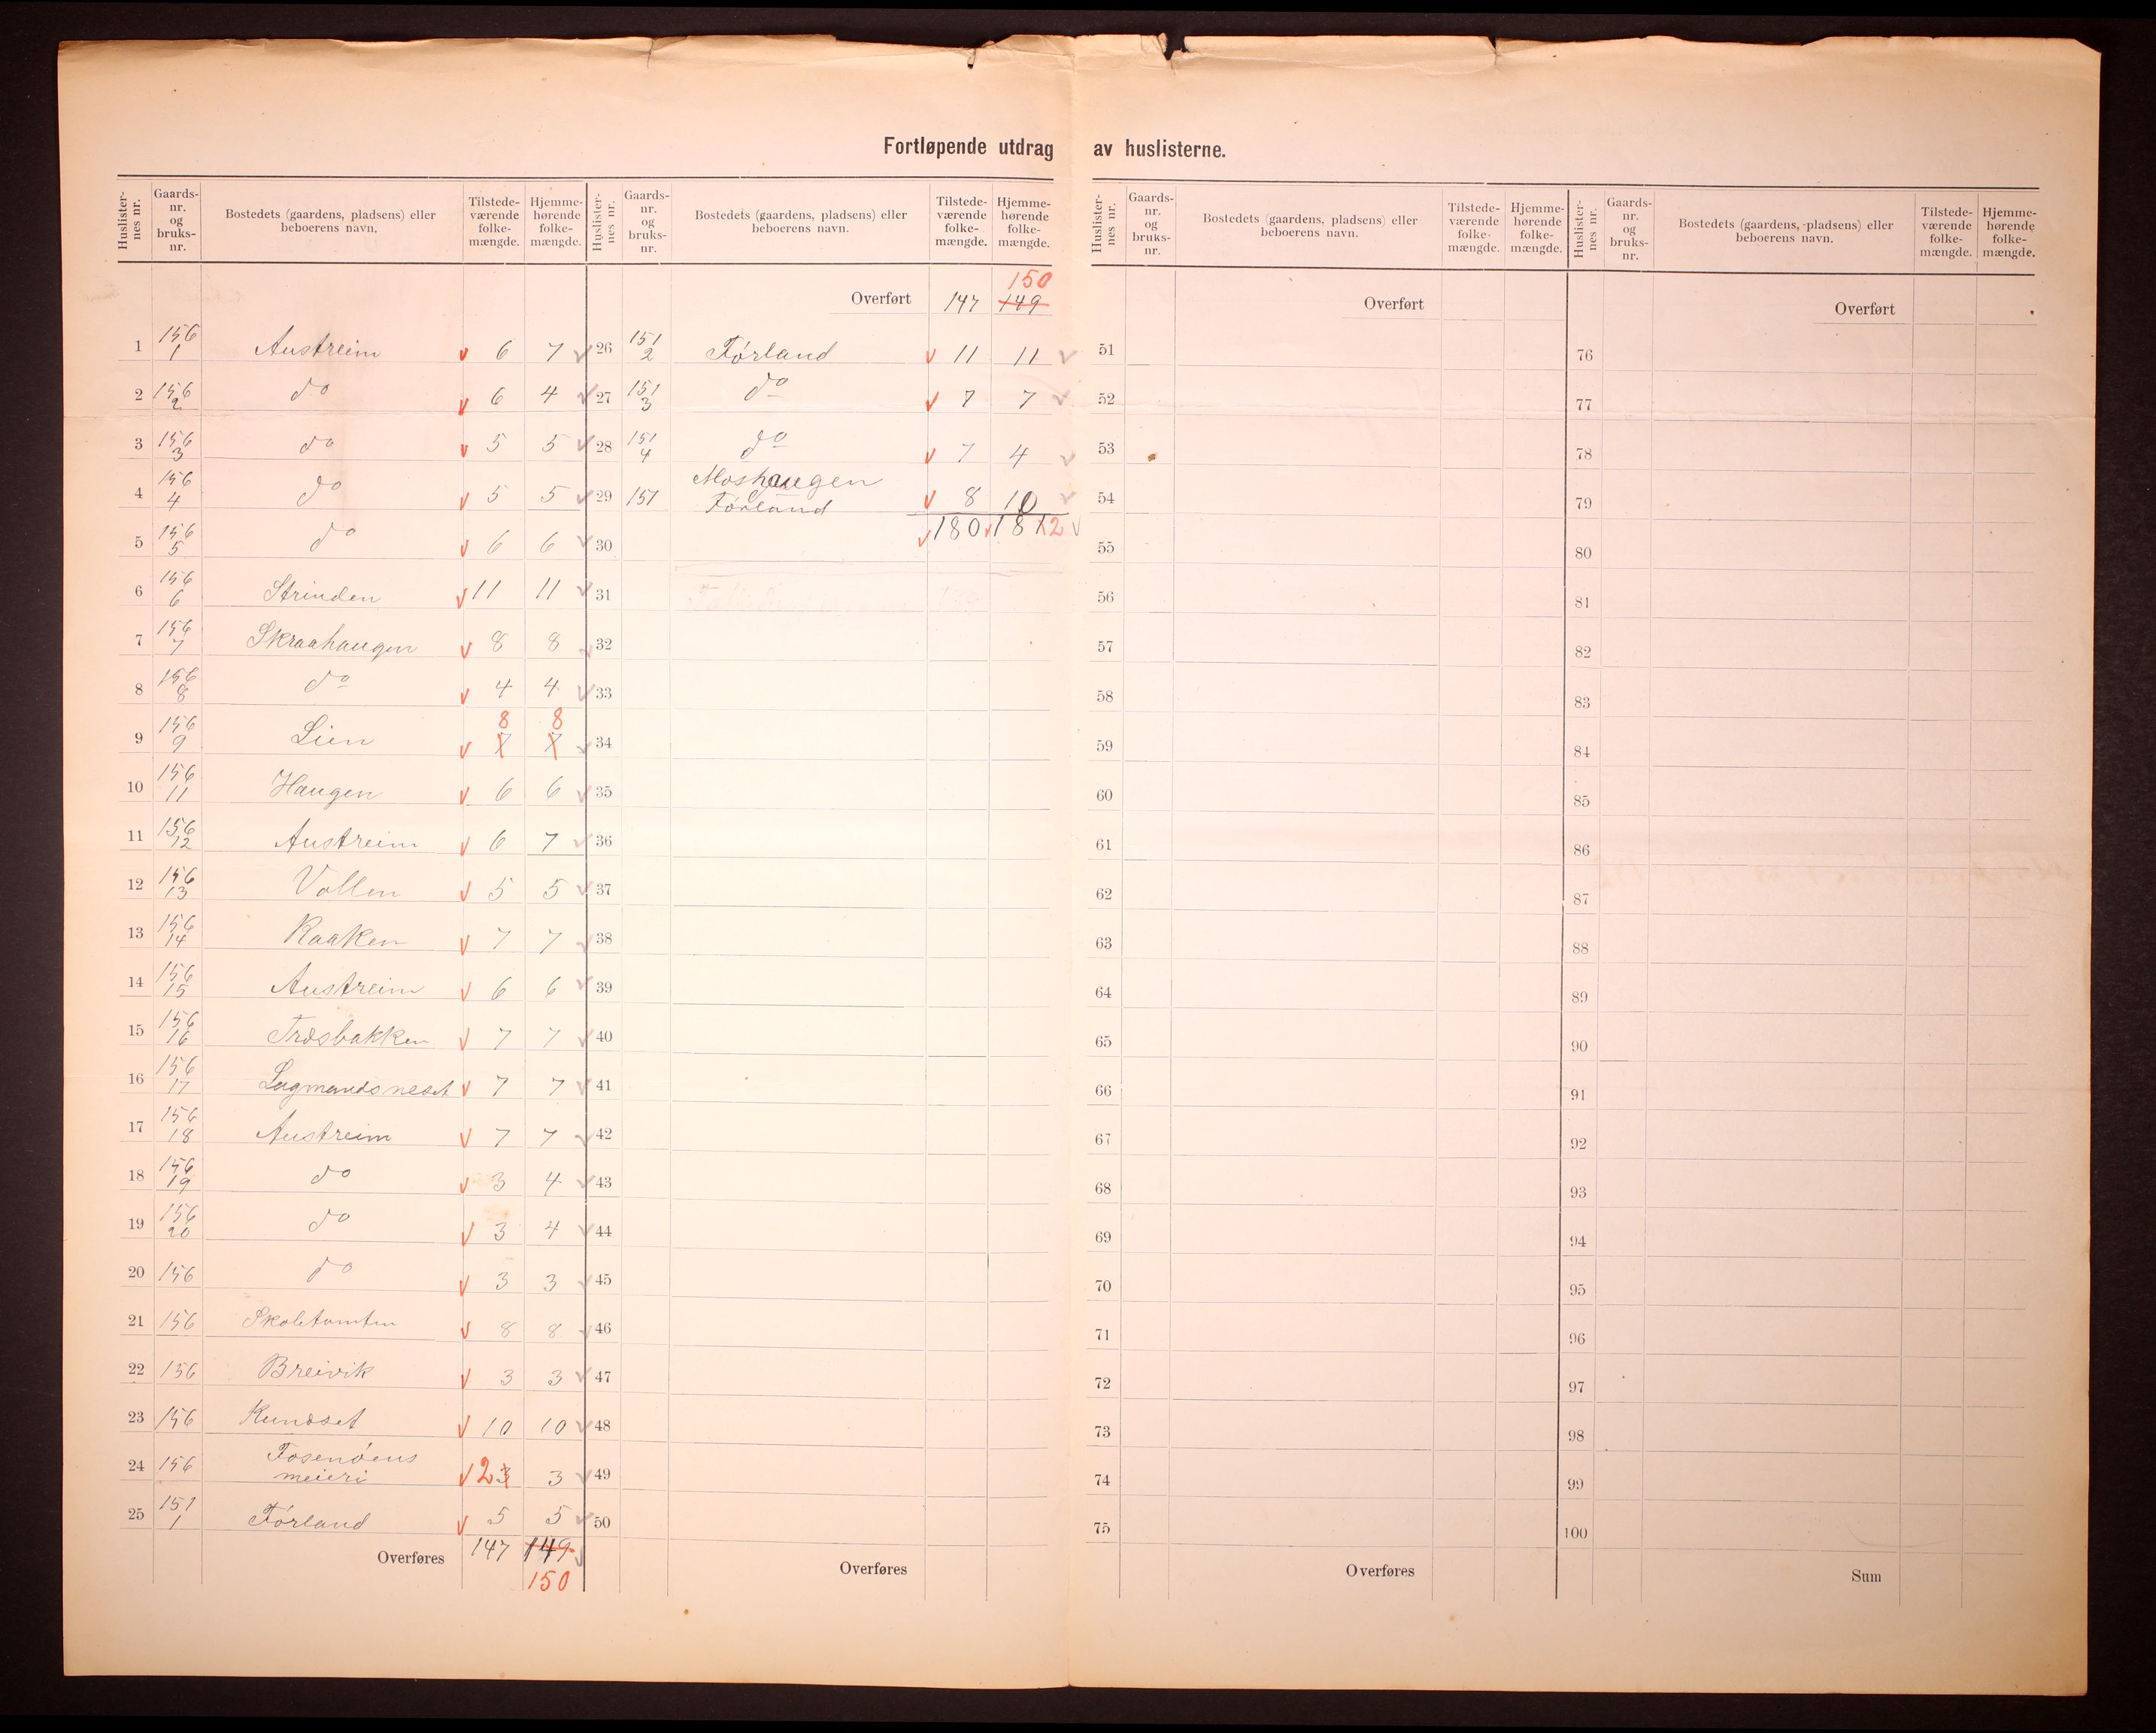 Fortløpende utdrag av huslisterne.
Huslister-nes nr. Gaards-nr. og bruks-nr. Bostedets (gaardens, pladsens) eller beboerens navn. Tilstede-værende folke-mængde. Hjemme-hørende folke-mængde.
1 156/1 Austreim 6 7
2 156/2 do 6 4
3 156/3 do 5 5
4 156/4 do 5 5
5 156/5 do 6 6
6 156/6 Strinden 11 11
7 156/7 Skraahaugen 8 8
8 156/8 do 4 4
8 8
9 156/9 Lien 7 7
10 156/11 Haugen 6 6
11 156/12 Austreim 6 7
12 156/13 Vollen 5 5
13 156/14 Raaken 7 7
14 156/15 Austreim 6 6
15 156/16 Træsbakken 7 7
16 156/17 Lagmandsneset 7 7
17 156/18 Austreim 7 7
18 156/19 do 3 4
19 156/20 do 3 4
20 156 do 3 3
21 156 Skoletomten 8 8
22 156 Breivik 3 3
23 156 Rundset 10 10
24 156 Fosenøens
meieri 2 3 3
25 151/1 Førland 5 5
Overføres 147 149
150
Huslister-nes nr. Gaards-nr. og bruks-nr. Bostedets (gaardens, pladsens) eller beboerens navn. Tilstede-værende folke-mængde. Hjemme-hørende folke-mængde.
150
Overført 147 149
26 151/2 Førland 11 11
27 151/3 do 7 7
28 151/4 do 7 4
29 151 Moshaugen
Førland 8 10
180 181 2
30
31
32
33
34
35
36
37
38
39
40
41
42
43
44
45
46
47
48
49
50
Overføres
Huslister-nes nr. Gaards-nr. og bruks-nr. Bostedets (gaardens, pladsens) eller beboerens navn. Tilstede-værende folke-mængde. Hjemme-hørende folke-mængde.
Overført
51
52
53
54
55
56
57
58
59
60
61
62
63
64
65
66
67
68
69
70
71
72
73
74
75
Overføres
Huslister-nes nr. Gaards-nr. og bruks-nr. Bostedets (gaardens, pladsens) eller beboerens navn. Tilstede-værende folke-mængde. Hjemme-hørende folke-mængde.
Overført
76
77
78
79
80
81
82
83
84
85
86
87
88
89
90
91
92
93
94
95
96
97
98
99
100
Sum